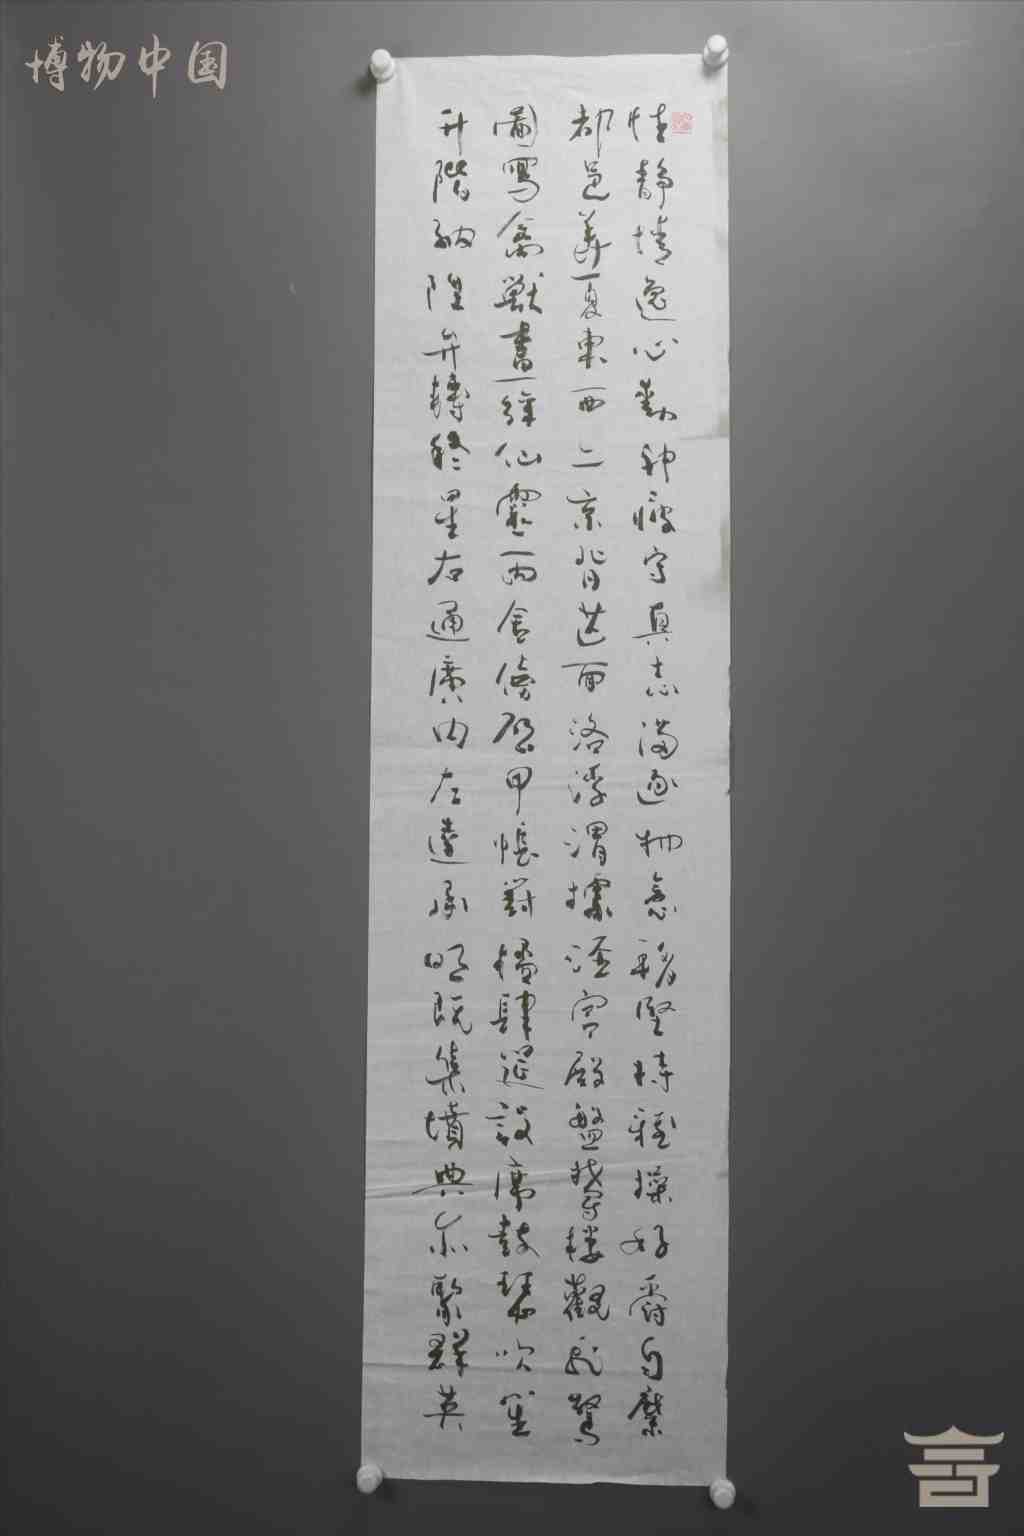 博物中国
性静情逸心动神疲守真志满逐物意移坚持雅操好爵自縻
都邑华夏东西二京背芒面洛浮渭据泾宫殿盘郁楼观飞惊
图写禽兽画彩仙灵丙舍傍启甲帐对楹肆筵设席鼓瑟吹笙
升阶纳陛弁转疑星右通广内左达承明既集坟典亦聚群英